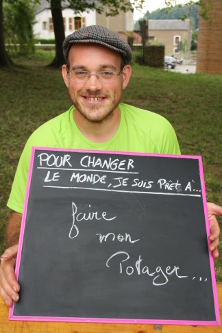 POUR CHANGER
LE MONDE, JE SUIS PRÊT À...
faire
mon
Potager...